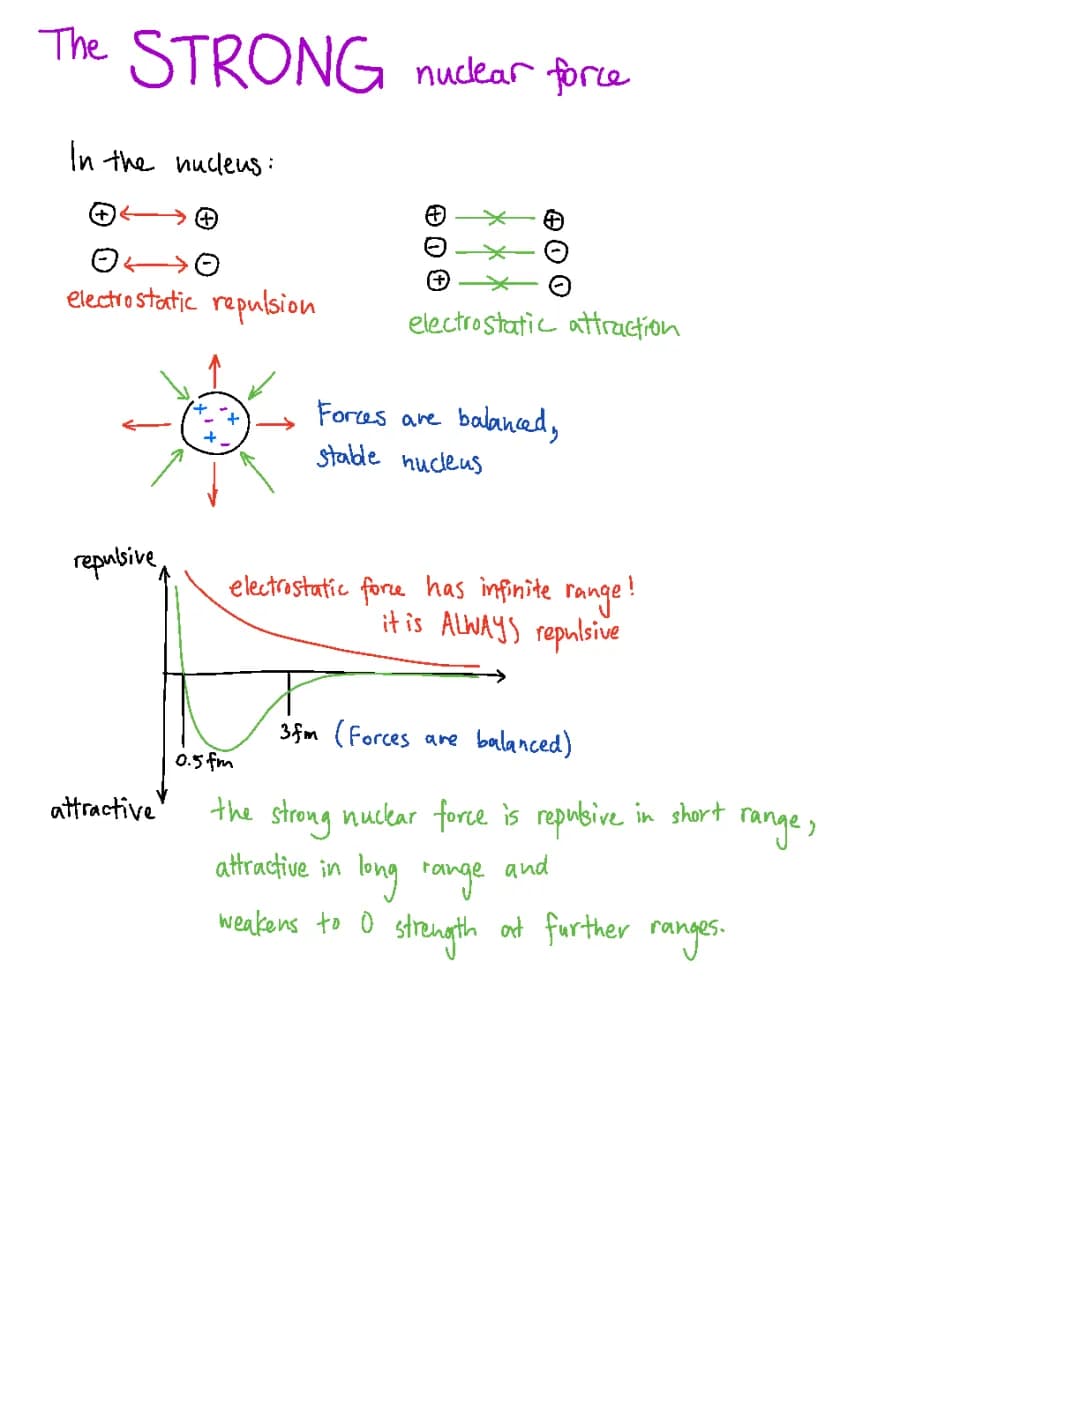 The STRONG nuclear force
In the nucleus:
+ +
- -
electrostatic repulsion
+ +
- -
+ -
electrostatic attraction
+ - - + + -
Forces are balanced,
stable nucleus
repulsive
electrostatic force has infinite range!
it is ALWAYS repulsive
3fm (Forces are balanced)
0.5fm
attractive
the strong nuclear force is repulsive in short range,
attractive in long range and
weakens to 0 strength at further ranges.